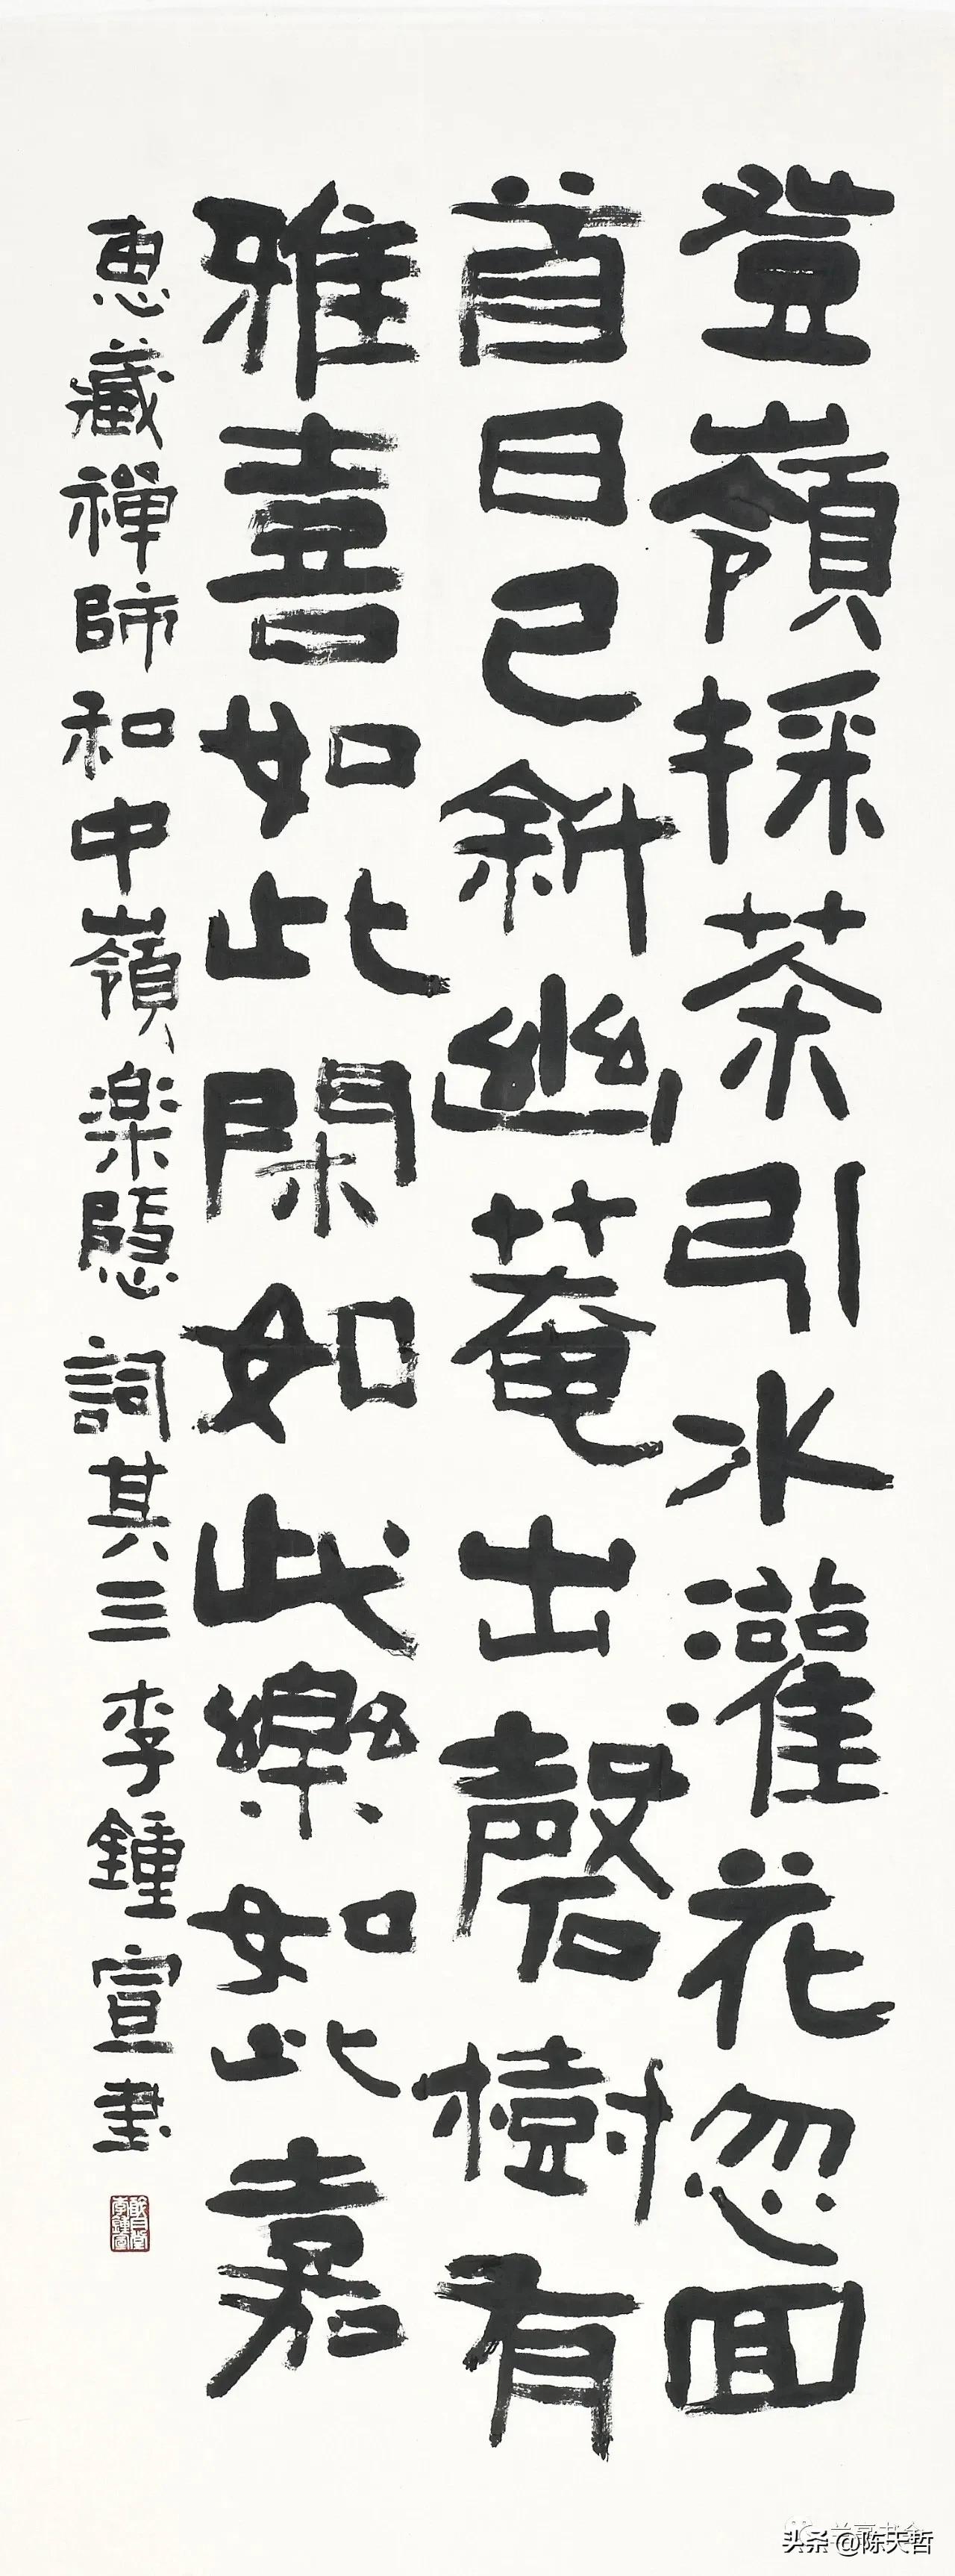 登嶺採茶引水灌花忽回
首日已斜幽菴出磬樹有
雅喜如此閑如此樂如此嘉
惠藏禪師和中嶺楽隱詞其三李鍾宣書
头条@陈天哲